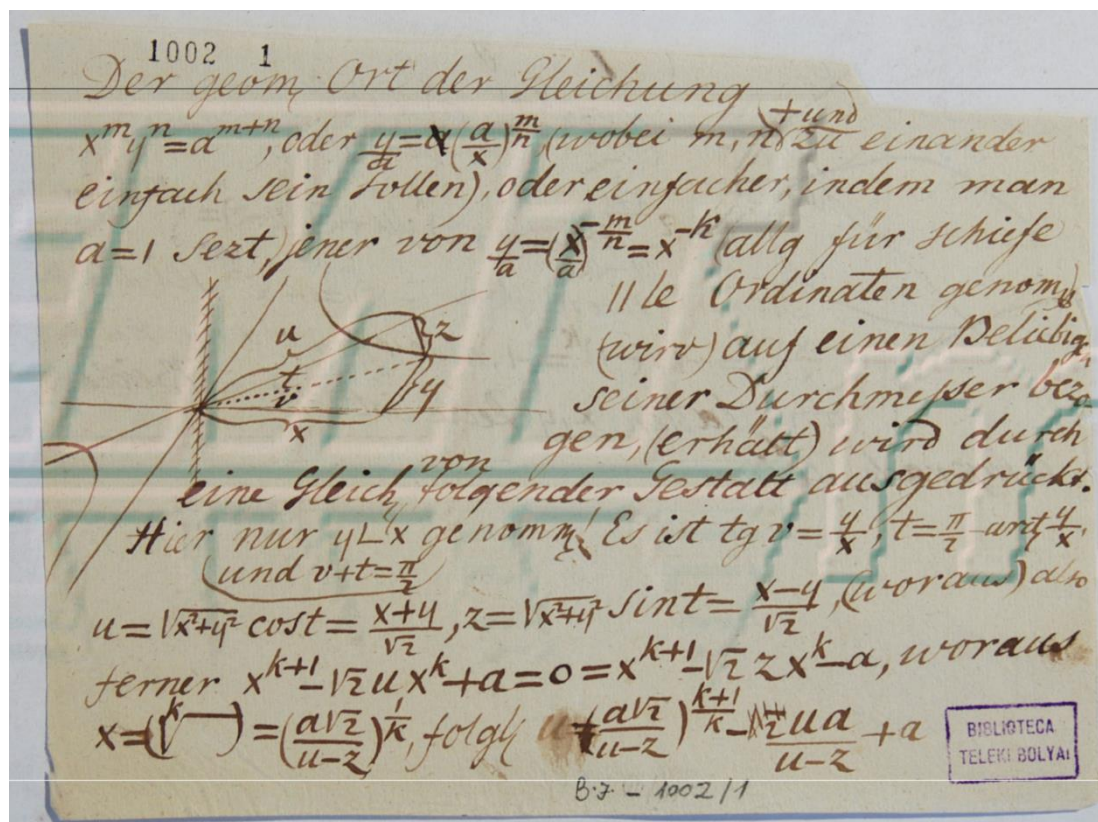 1002 1
Der geom. Ort der Gleichung
x^m y^n = a^{m+n}, oder y/a = (a/x)^{m/n} (wobei m, n + und zu einander
einfach sein sollen), oder einfacher, indem man
a=1 sezt, jener von y/a = (x/a)^{-m/n} = x^{-k} (allg für schiefe
||le Ordinaten genom
(wird) auf einen Beliebig
seiner Durchmesser bezo
gen, (erhält) wird durch
eine Gleich von folgender Gestalt ausgedrückt.
Hier nur y ∟ x genom! Es ist tg v = y/x, t = π/2 -
(und v+t = π/2)
u = √(x²+y²) cos t = (x+y)/√2, z = √(x²+y²) sin t = (x-y)/√2, (woraus) also
ferner x^{k+1} - √2 u x^k + a = 0 = x^{k+1} - √2 z x^k - a, woraus
x = (k√ ) = (a√2/(u-z))^{1/k}, folgl (a√2/(u-z))^{(k+1)/k} - ua/(u-z) + a
u
z
t
v
y
x
BIBLIOTECA
TELEKI BOLYAI
B.J – 1002/1